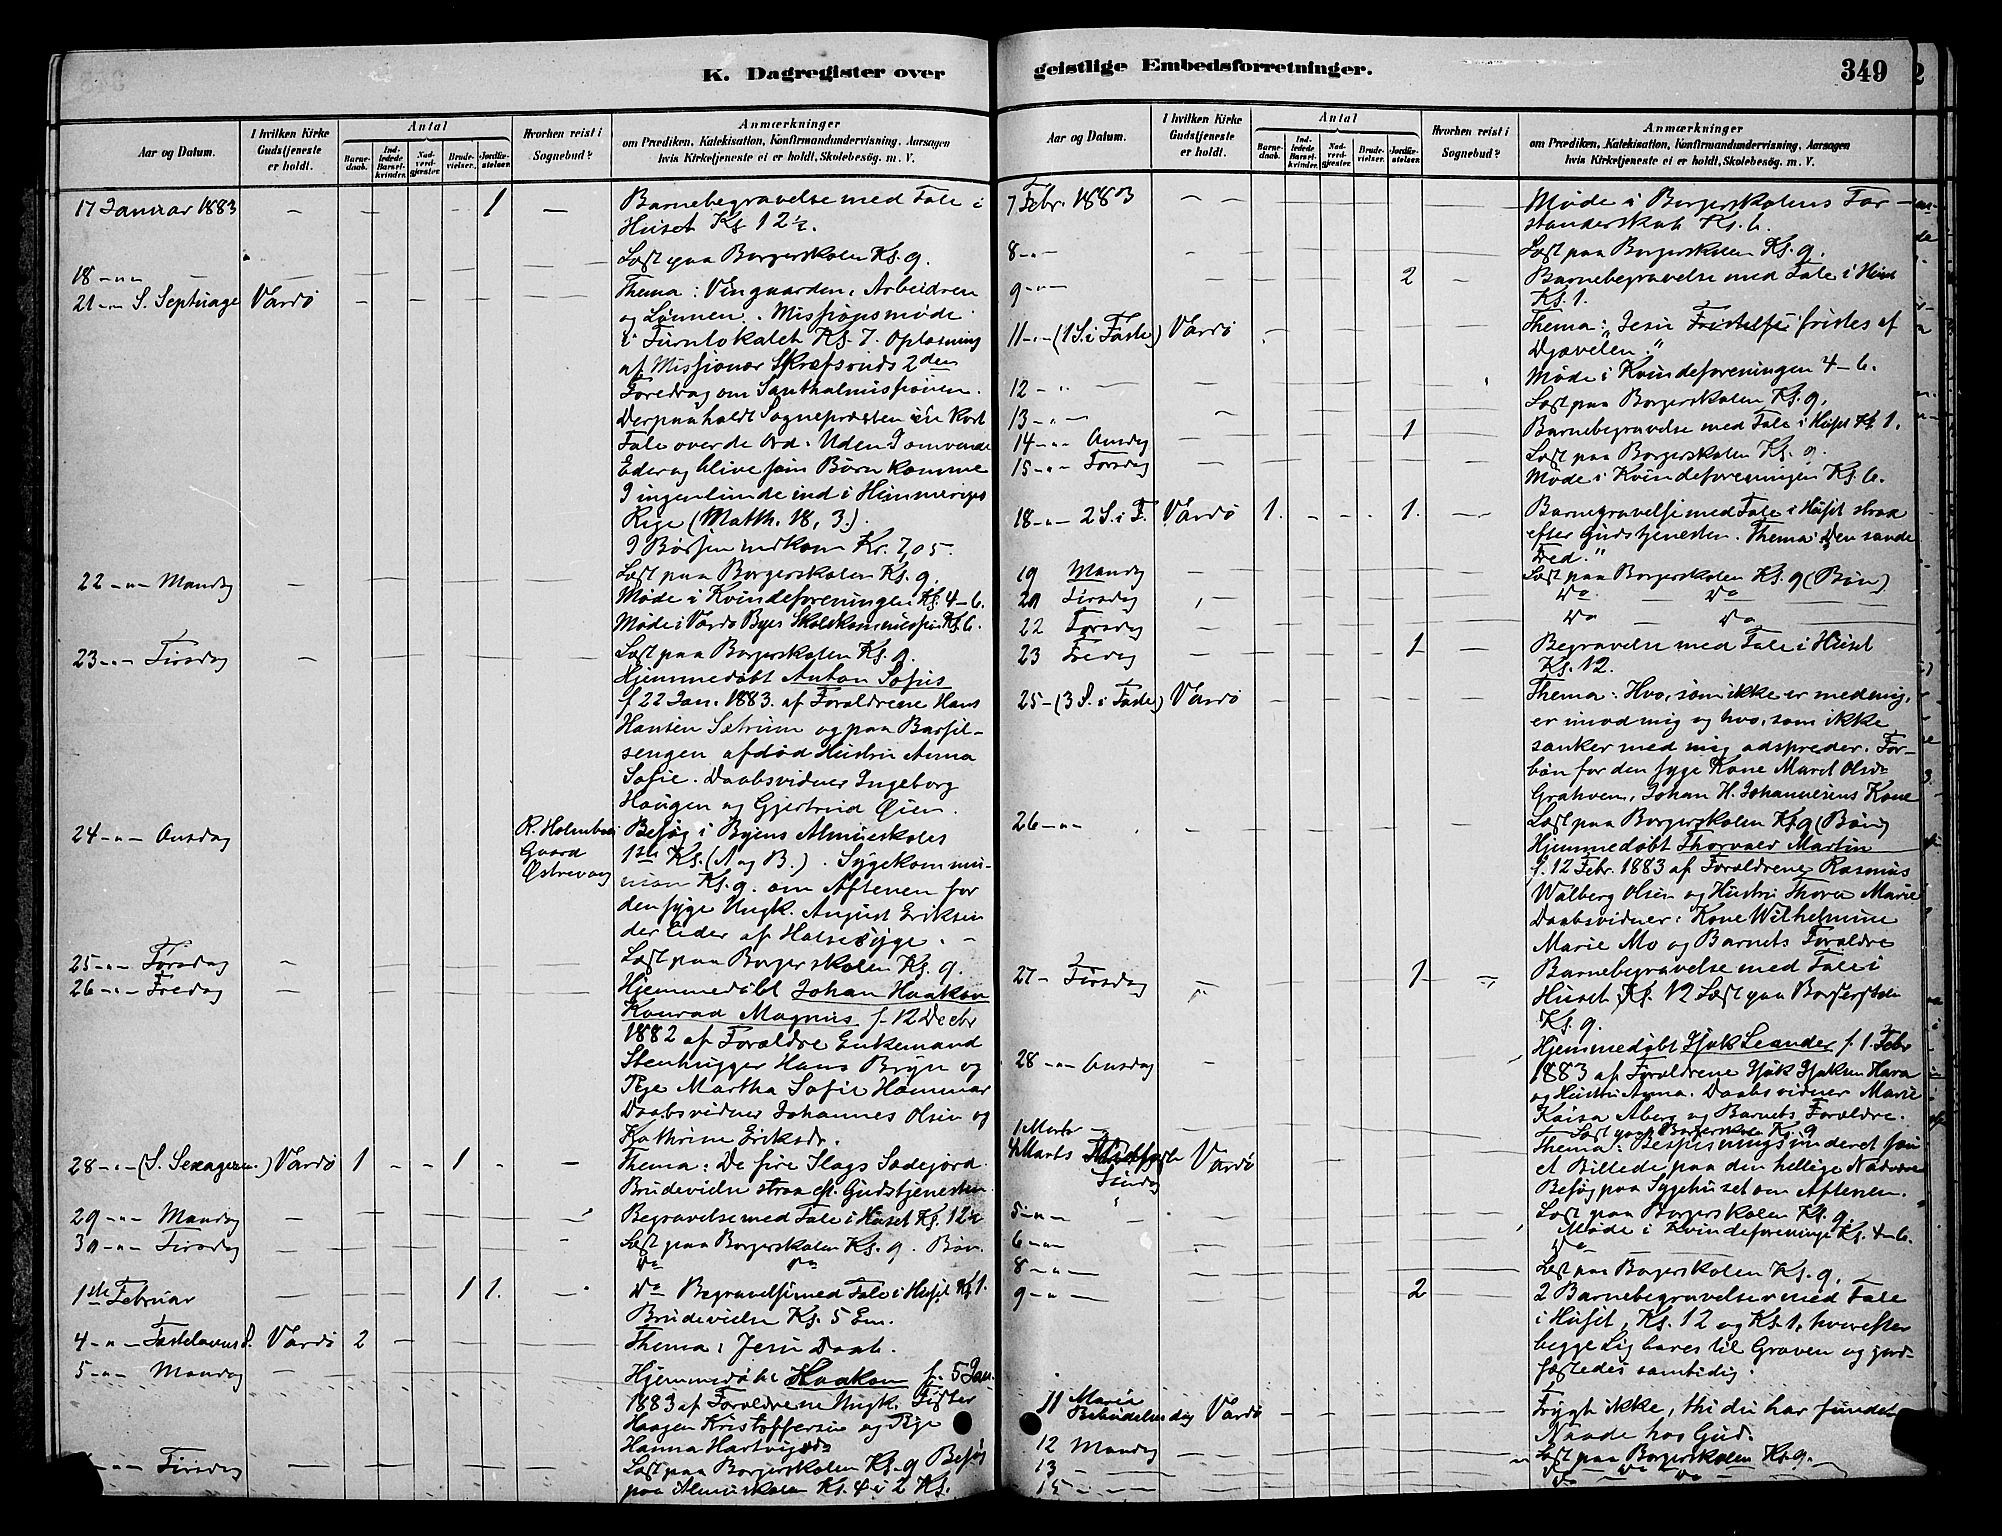 K. Dagregister over
Aar og Datum.
I hvilken Kirke Gudstjeneste er holdt.
Antal
Barnedaab.
Indledede Barselkvinder.
Nadverdgjester.
Brudevielser.
Jordfæstelser.
Hvorhen reist i Sognebud?
Anmærkninger
om Prædiken, Katekisation, Konfirmandundervisning, Aarsagen
hvis Kirketjeneste ei er holdt, Skolebesøg. m. V.
17 Januar 1883 1 Barnebegravelse med Tale i
Huset Kl 12½.
18 Læst paa Borgerskolen Kl. 9.
21 S. Septuages Vardø Thema: Vingaarden, Arbeidren
og Lønnen. Missionsmøde
i Turnlokalet Kl. 7. Oplæsning
af Missionær Skrefsruds 2den
Foredrag om Santhalmissionen.
Derpaa holdt Sognepræsten en kort
Tale over de Ord: Uden I omvende
Eder og blive som Børn komme
I ingenlunde ind i Himmeriges
Rige (Matth. 18, 3.).
I Bøssen indkom Kr. 7,05.
22 Mandag Læst paa Borgerskolen Kl. 9.
Møde i Kvindeforeningen Kl. 4-6.
Møde i Vardø Byes Skolekommission Kl. 6.
23 Tirsdag Læst paa Borgerskolen Kl. 9.
Hjemmedøbt Anton Sofus
f. 22 Jan. 1883. af Forældrene Hans
Hansen Sætrum og paa Barsel-
sengen afdød Hustru Anna
Sofie. Daabsvidner Ingeborg
Haugen og Gjertrud Øien.
24 Onsdag R. Holmboes Besøg i Byens Almueskoles
Gaard 1ste Kl. (A og B.). Sygekommu-
Østrevaag nion Kl. 9. om Aftenen for
den syge Ungk. August Eriksen
der lider af Halsesyge.
25 Torsdag Læst paa Borgerskolen Kl. 9.
26 Fredag Hjemmedøbt Johan Haakon
Konrad Magnus f. 12 Decbr
1882 af Forældre Enkemand
Stenhugger Hans Bryn og
Pige Martha Sofie Hammar
Daabsvidner Johannes Olsen og
Kathrine Eriksdr.
28 (S. Sexagesim.) Vardø 1 1 Thema: De fire Slags Sædejord.
Brudevielse strax eft. Gudstjenesten.
29 Mandag Begravelse med Tale i Huset Kl. 12½
30 Tirsdag Læst paa Borgerskolen Kl. 9. Bøn.
Do Do
1ste Februar 1 1. Do Begravelse med Tale i Huset Kl 1.
Brudevielse Kl. 5 Em.
4 Fastelavns S. Vardø 2 Thema: Jesu Daab.
5 Mandag Hjemmedøbt Haakon f. 5 Jan.
1883 af Forældrene Ungk. Fisker
Haagen Kristoffersen og Pige
Hanna Hartvigsdr
Tirsdag Læst paa Borgerskolen Kl. 9 Besøg
paa Almueskolen Kl. 4 i 2 Kl.
geistlige Embedsforretninger.
349
Aar og Datum.
I hvilken Kirke Gudstjeneste er holdt.
Antal
Barnedaab.
Indledede Barselkvinder.
Nadverdgjester.
Brudevielser.
Jordfæstelser.
Hvorhen reist i Sognebud?
Anmærkninger
om Prædiken, Katekisation, Konfirmandundervisning, Aarsagen
hvis Kirketjeneste ei er holdt, Skolebesøg. m. V.
7 Febr. 1883 Møde i Borgerskolens For-
standerskab Kl. 6.
8 Læst paa Borgerskolen Kl. 9.
9 2 Barnebegravelse med Tale i Huset
Kl. 1.
11 (1 S. i Faste) Vardø Thema: "Jesu fristes af
Djævelen."
12 Møde i Kvindeforeningen 4-6.
13 Læst paa Borgerskolen Kl. 9.
14 Onsdag 1 Barnebegravelse med Tale i Huset Kl. 1.
15 Torsdag Læst paa Borgerskolen Kl. 9.
Møde i Kvindeforeningen Kl. 6.
18 2 S. i F. Vardø 1. 1. Barnegravelse med Tale i Huset strax
efter Gudstjenesten. Thema: "Den sande
Fred."
19 Mandag Læst paa Borgerskolen Kl. 9 (Bøn)
20 Tirsdag Do Do
22 Torsdag Do Do
23 Fredag 1 Begravelse med Tale i Huset
Kl. 12.
25 (3 S. i Faste) Vardø Thema: Hvo, som ikke er med mig,
er imod mig og hvo, som ikke
sanker med mig adspreder. For-
bøn for den syge Kone Maret Olsdr
Grahven, Johan H. Johannesens Kone
26 Læst paa Borgerskolen Kl. 9 (Bøn)
Hjemmedøbt Thorvald Martin
f. 12 Febr. 1883 af Forældrene Rasmus
Walberg Olsen og Hustru Thora Marie
Daabsvidner: Kone Wilhelmine
Marie Mo og Barnets Forældre
27 Tirsdag 1 Barnebegravelse med Tale i
Huset Kl. 12 Læst paa Borgerskolen
Kl. 9.
28 Onsdag Hjemmedøbt Isak Leander f. 1. Febr
1883 af Forældrene Isak Isaksen Hara
og Hustru Anna. Daabsvidner Marie
Kaisa Aberg og Barnets Forældre.
1 Marts Læst paa Borgerskolen Kl. 9
4 Marts Midfaste Vardø Thema: Bespisningsunderet som
Søndag et Billede paa den hellige Nadvere
Besøg paa Sygehuset om Aftenen.
5 Læst paa Borgerskolen Kl. 9.
Møde i Kvindeforeninge Kl. 4-6.
6 Do
8 Læst paa Borgerskolen Kl. 9.
9 2 2 Barnebegravelser med Tale
i Huset, Kl. 12 og Kl. 1, hvorefter
begge Lig bares til Graven og jord-
fæstedes samtidig.
11 Maria Bebudelses dag Vardø Frygt ikke, thi du har fundet
Naade hos Gud.
12 Mandag Læst paa Borgerskolen Kl. 9.
13 Do Do
15 Do